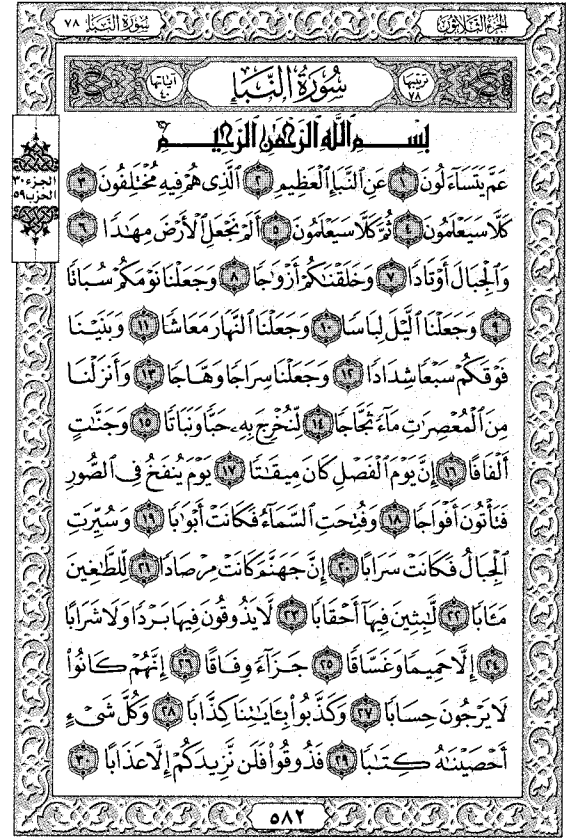 سُورَةُ النَّبَإِ ٧٨
الجُزءُ الثَّلَاثُونَ
آيَاتُهَا ٤٠
سُورَةُ النَّبَإِ
تَرتِيبُهَا ٧٨
بِسْمِ ٱللَّهِ ٱلرَّحْمَٰنِ ٱلرَّحِيمِ
الجزء ٣٠
الحزب ٥٩
عَمَّ يَتَسَآءَلُونَ ١ عَنِ ٱلنَّبَإِ ٱلْعَظِيمِ ٢ ٱلَّذِى هُمْ فِيهِ مُخْتَلِفُونَ ٣
كَلَّا سَيَعْلَمُونَ ٤ ثُمَّ كَلَّا سَيَعْلَمُونَ ٥ أَلَمْ نَجْعَلِ ٱلْأَرْضَ مِهَٰدًا ٦
وَٱلْجِبَالَ أَوْتَادًا ٧ وَخَلَقْنَٰكُمْ أَزْوَٰجًا ٨ وَجَعَلْنَا نَوْمَكُمْ سُبَاتًا
٩ وَجَعَلْنَا ٱلَّيْلَ لِبَاسًا ١٠ وَجَعَلْنَا ٱلنَّهَارَ مَعَاشًا ١١ وَبَنَيْنَا
فَوْقَكُمْ سَبْعًا شِدَادًا ١٢ وَجَعَلْنَا سِرَاجًا وَهَّاجًا ١٣ وَأَنزَلْنَا
مِنَ ٱلْمُعْصِرَٰتِ مَآءً ثَجَّاجًا ١٤ لِّنُخْرِجَ بِهِۦ حَبًّا وَنَبَاتًا ١٥ وَجَنَّٰتٍ
أَلْفَافًا ١٦ إِنَّ يَوْمَ ٱلْفَصْلِ كَانَ مِيقَٰتًا ١٧ يَوْمَ يُنفَخُ فِى ٱلصُّورِ
فَتَأْتُونَ أَفْوَاجًا ١٨ وَفُتِحَتِ ٱلسَّمَآءُ فَكَانَتْ أَبْوَٰبًا ١٩ وَسُيِّرَتِ
ٱلْجِبَالُ فَكَانَتْ سَرَابًا ٢٠ إِنَّ جَهَنَّمَ كَانَتْ مِرْصَادًا ٢١ لِّلطَّٰغِينَ
مَـَٔابًا ٢٢ لَّٰبِثِينَ فِيهَآ أَحْقَابًا ٢٣ لَّا يَذُوقُونَ فِيهَا بَرْدًا وَلَا شَرَابًا
٢٤ إِلَّا حَمِيمًا وَغَسَّاقًا ٢٥ جَزَآءً وِفَاقًا ٢٦ إِنَّهُمْ كَانُوا۟
لَا يَرْجُونَ حِسَابًا ٢٧ وَكَذَّبُوا۟ بِـَٔايَٰتِنَا كِذَّابًا ٢٨ وَكُلَّ شَىْءٍ
أَحْصَيْنَٰهُ كِتَٰبًا ٢٩ فَذُوقُوا۟ فَلَن نَّزِيدَكُمْ إِلَّا عَذَابًا ٣٠
٥٨٢